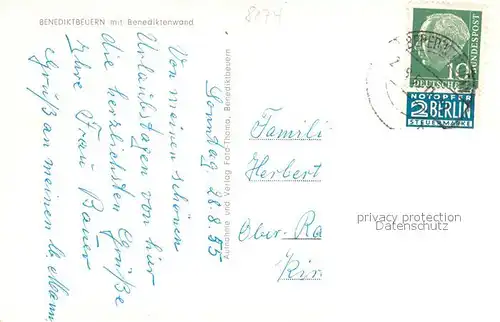 BENEDIKTBEUERN mit Benediktenwand
8174
Sonntag, 28.8.55
Von meinen schönen
Urlaubstagen von hier
die herzlichsten Grüße
Ihre Frau Bauer
Grüß an meinen lb. Mann
Aufnahme und Verlag Foto-Thoma, Benediktbeuern
DEUTSCHE BUNDESPOST
10
NOTOPFER
2 BERLIN
STEUERMARKE
Famili
Herbert
Ober-Ra
Kir
privacy protection
Datenschutz